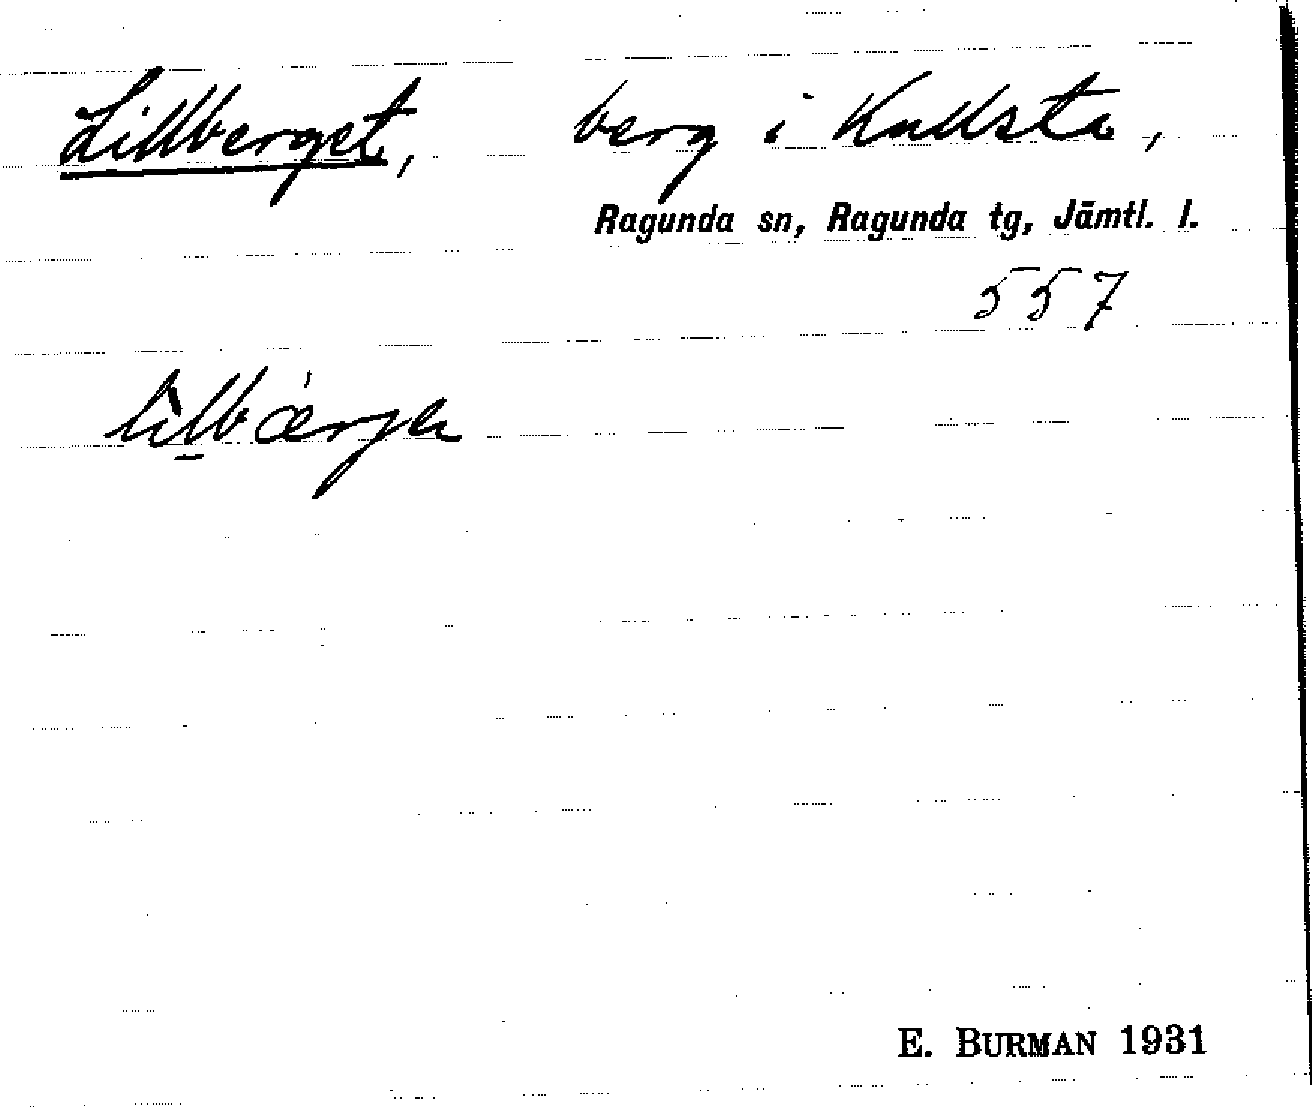 Lillberget, berg i Kullsta,
Ragunda sn, Ragunda tg, Jämtl. l.
557
E. BURMAN 1931